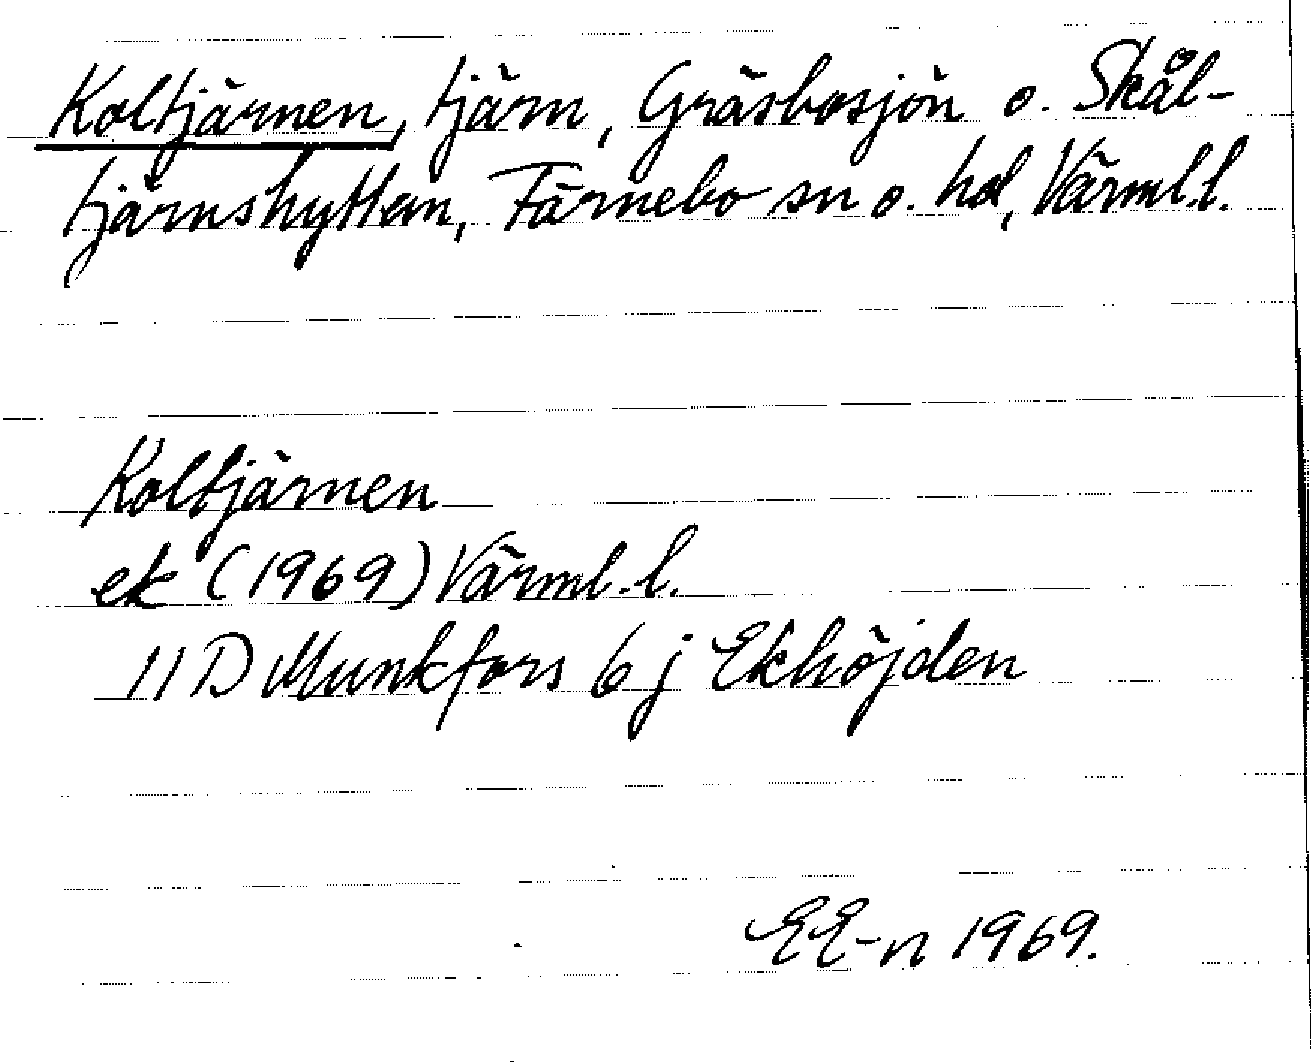 Koltjärnen, tjärn, Gräsbosjön o. Skål-
tjärnshyttan, Färnebo sn o. hd, Värml.l.
Koltjärnen
ek (1969) Värml.l.
11 D Munkfors 6 j Ekhöjden
EE-n 1969.